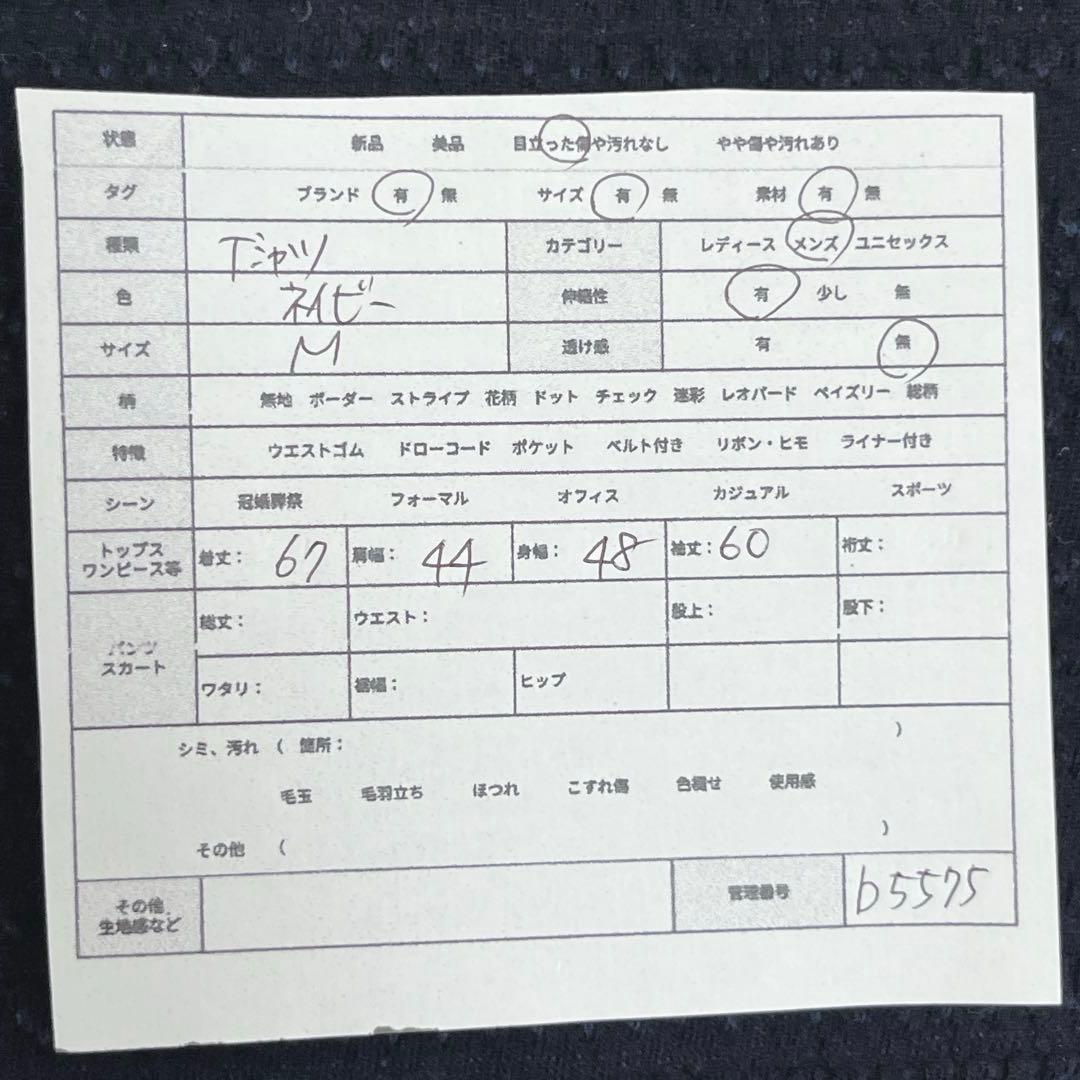 状態 新品 美品 目立った傷や汚れなし やや傷や汚れあり
タグ ブランド 有 無 サイズ 有 無 素材 有 無
種類 Tシャツ カテゴリー レディース メンズ ユニセックス
色 ネイビー 伸縮性 有 少し 無
サイズ M 透け感 有 無
柄 無地 ボーダー ストライプ 花柄 ドット チェック 迷彩 レオパード ペイズリー 総柄
特徴 ウエストゴム ドローコード ポケット ベルト付き リボン・ヒモ ライナー付き
シーン 冠婚葬祭 フォーマル オフィス カジュアル スポーツ
トップス
ワンピース等 着丈: 67 肩幅: 44 身幅: 48 袖丈: 60 裄丈:
パンツ
スカート 総丈: ウエスト: 股上: 股下:
ワタリ: 裾幅: ヒップ
シミ、汚れ ( 箇所: )
毛玉 毛羽立ち ほつれ こすれ傷 色褪せ 使用感
その他 ( )
その他
生地感など 管理番号 b5575